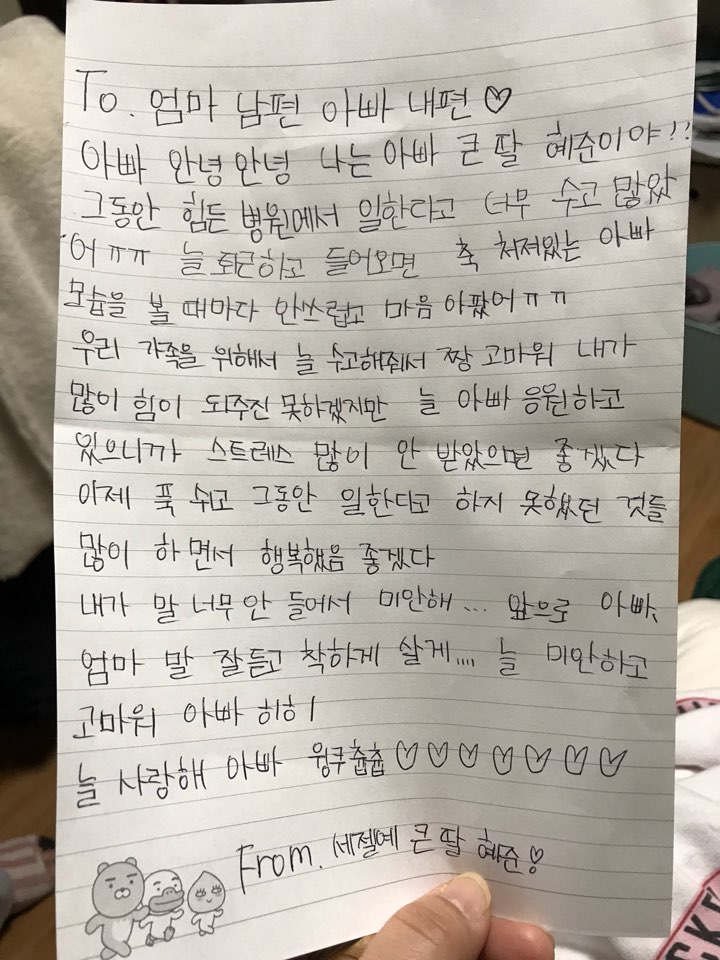 To. 엄마 남편 아빠 내편 ♡
아빠 안녕안녕 나는 아빠 큰 딸 혜준이야!?
그동안 힘든 병원에서 일한다고 너무 수고 많았
어 ㅠㅠ 늘 퇴근하고 들어오면 축 처져있는 아빠
모습을 볼 때마다 안쓰럽고 마음 아팠어ㅠㅠ
우리 가족을 위해서 늘 수고해줘서 짱 고마워 내가
많이 힘이 되주진 못하겠지만 늘 아빠 응원하고
있으니까 스트레스 많이 안 받았으면 좋겠다
이제 푹 쉬고 그동안 일한다고 하지 못했던 것들
많이 하면서 행복했음 좋겠다
내가 말 너무 안 들어서 미안해... 앞으로 아빠,
엄마 말 잘듣고 착하게 살게.... 늘 미안하고
고마워 아빠 히히
늘 사랑해 아빠 웡쿠츕츕♡♡♡♡♡♡♡
From. 세젤예 큰 딸 혜준!